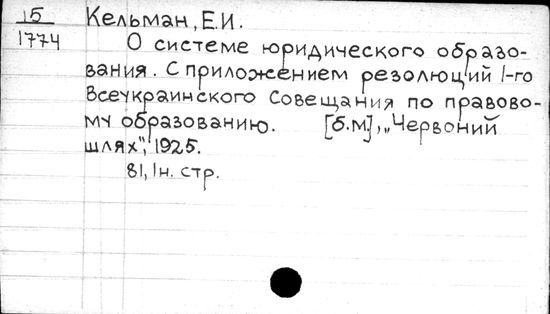 15
1774
Кельман, Е.И.
О системе юридического образо-
вания. С приложением резолюций 1-го
Всеукраинского Совещания по правово-
му образованию. [б.м], „Червоний
шлях", 1925.
81, 1н. стр.